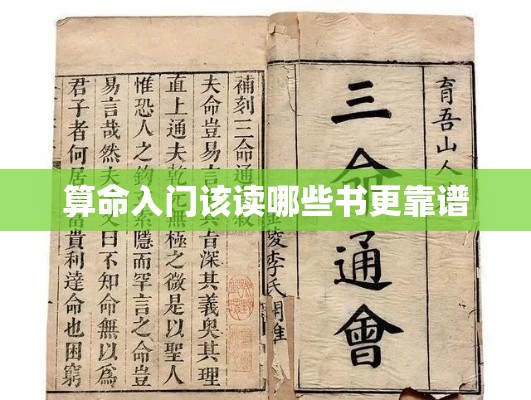 算命入门该读哪些书更靠谱
育吾山人
三命通會
陵李氏
補刻三命通
夫命豈易言
者深其義奥其理
直上通夫乾
無極之微是以聖人
惟恐人之鈎
隱而罕言之命豈
易言哉然夫
曰不知命無以爲
君子者何居
富貴利達命也困窮